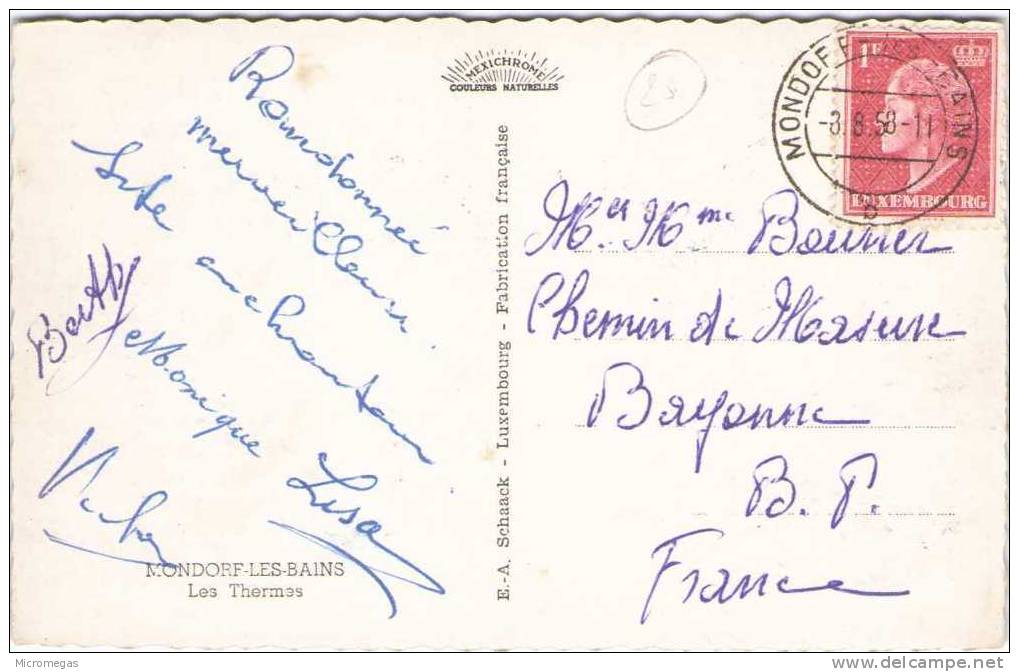 MEXICHROME
COULEURS NATURELLES
Randonnée
merveilleuse
Site enchanteur
Berthy
et Monique
Lisa
MONDORF-LES-BAINS
Les Thermes
E.-A. Schaack - Luxembourg - Fabrication française
28
MONDORF-LES-BAINS
-3.8.58-11
B
1F
LUXEMBOURG
Mr et Mme
Chemin de
Bayonne
B. P.
France
Micromegas
delcampe.net